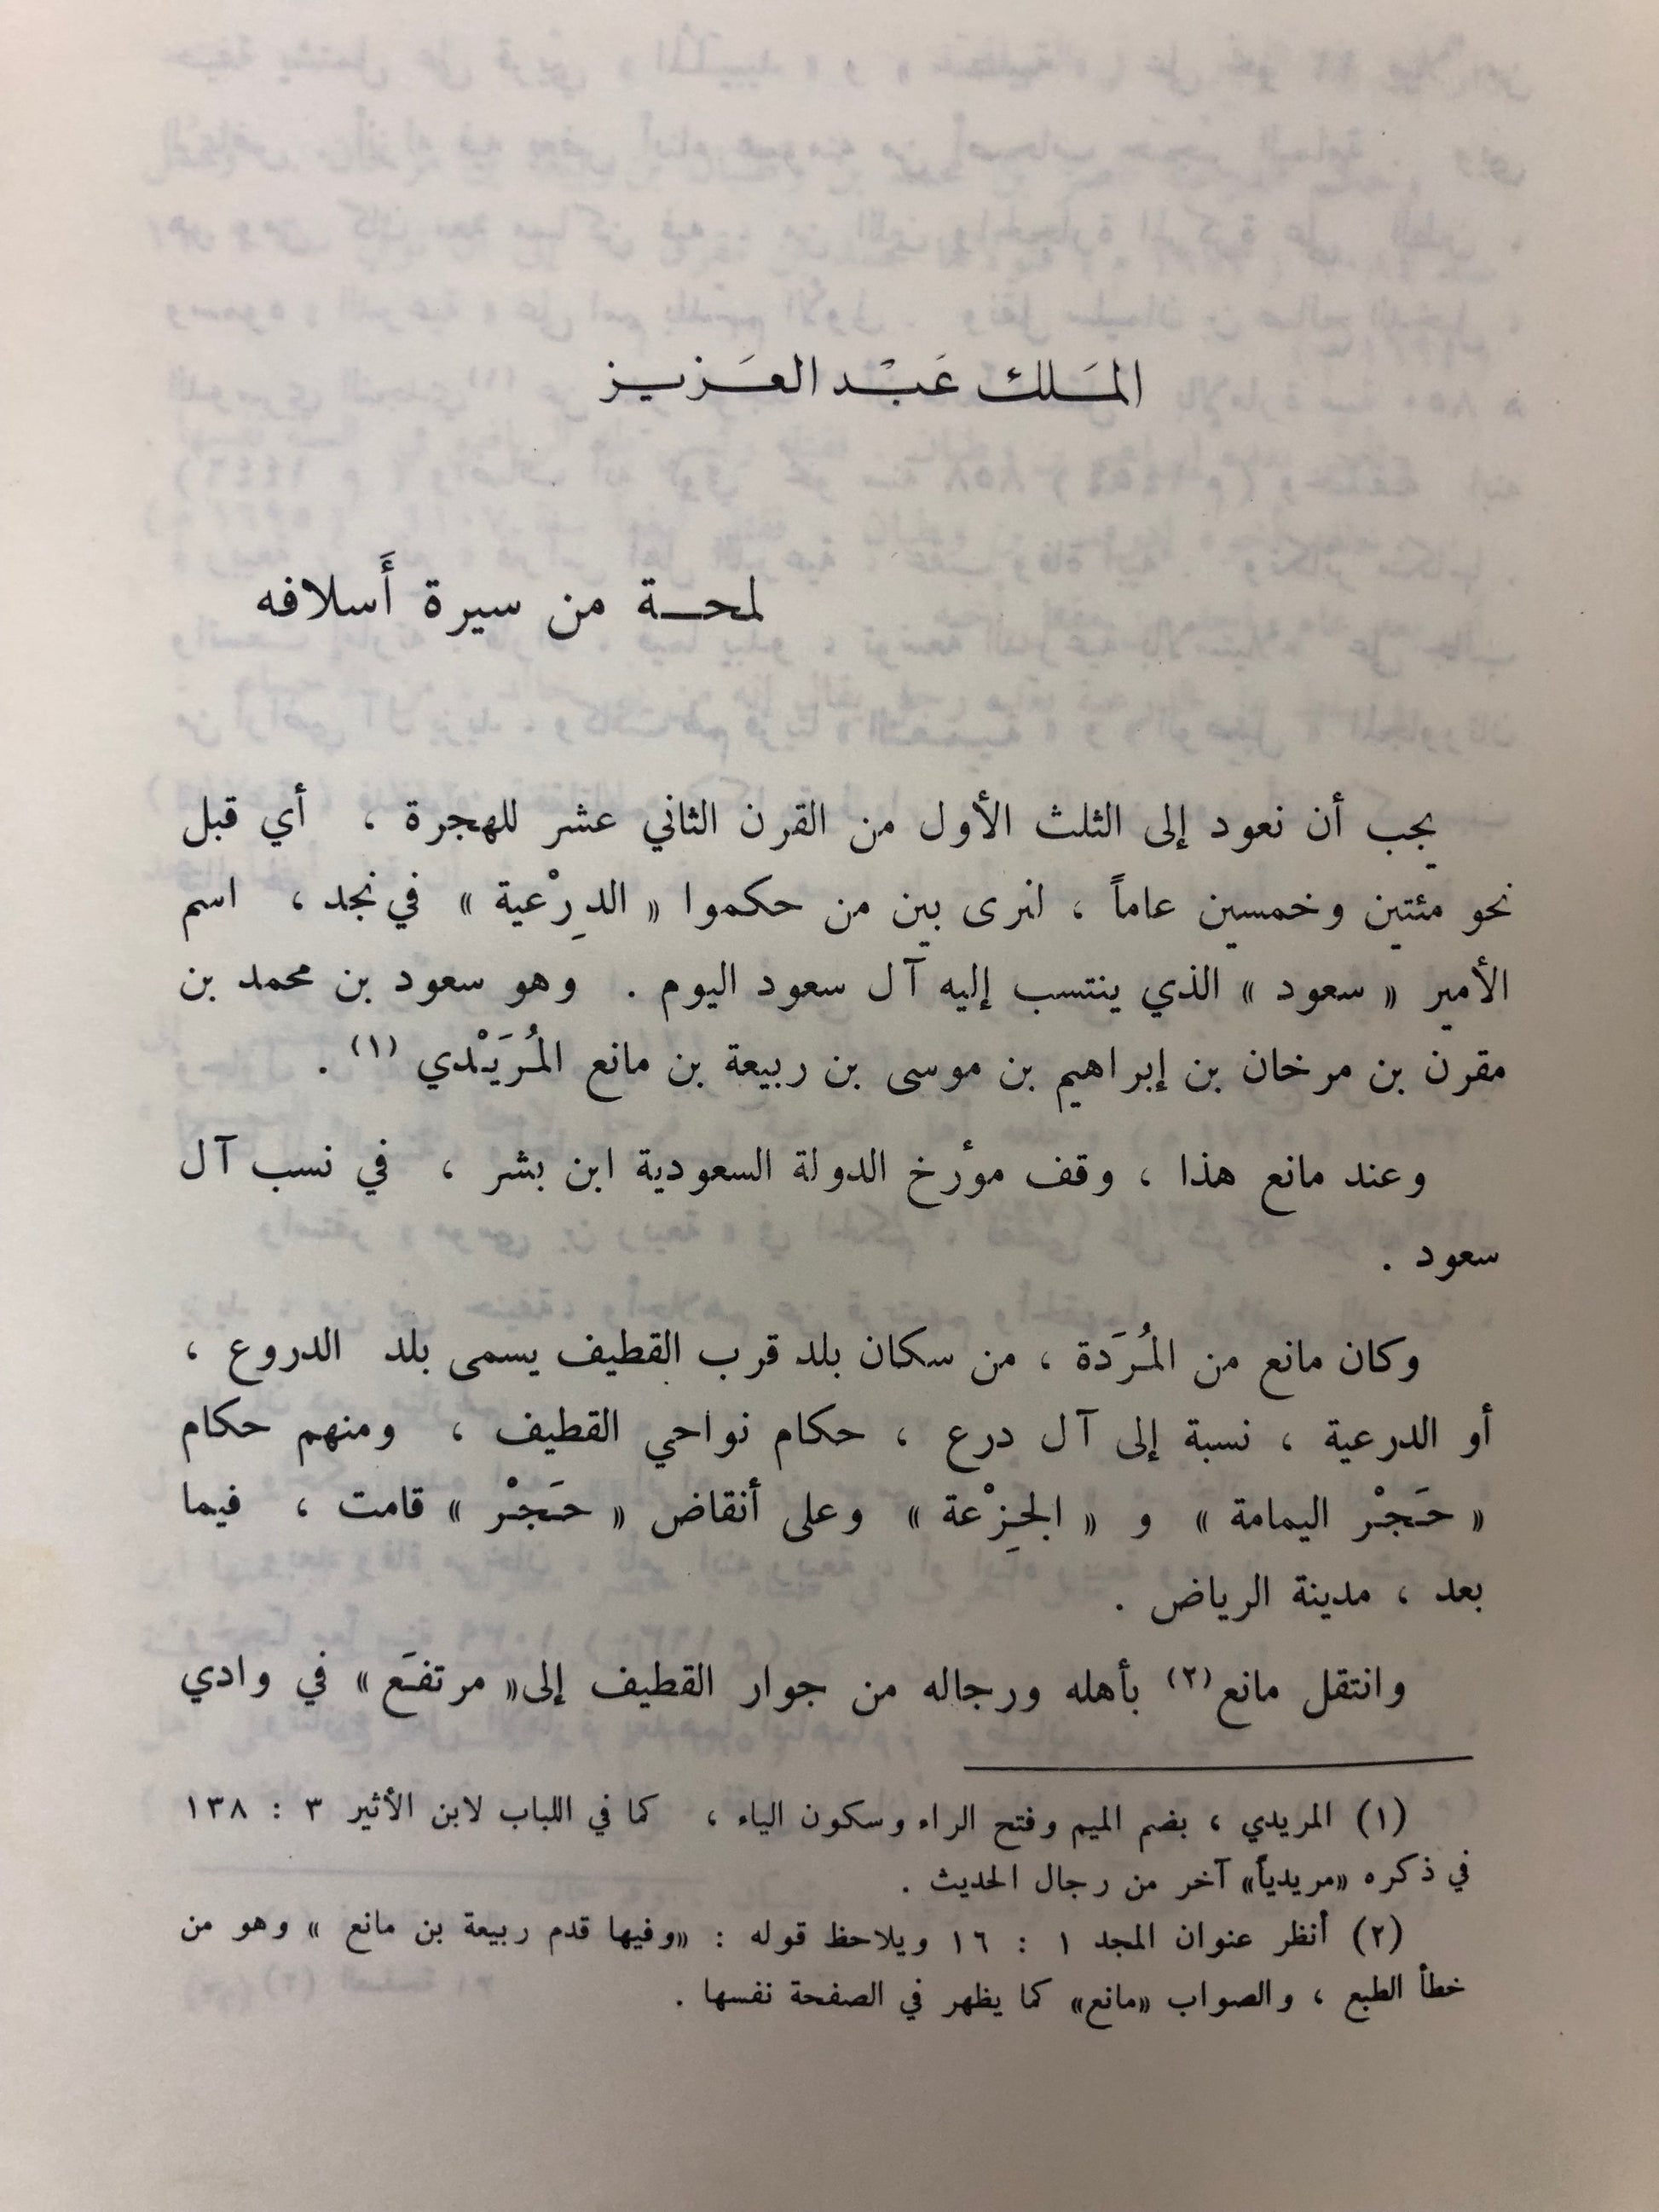 الملك عبد العزيز
لمحة من سيرة أسلافه
يجب أن نعود إلى الثلث الأول من القرن الثاني عشر للهجرة ، أي قبل
نحو مئتين وخمسين عاماً ، لنرى بين من حكموا « الدِرْعية » في نجد ، اسم
الأمير « سعود » الذي ينتسب إليه آل سعود اليوم . وهو سعود بن محمد بن
مقرن بن مرخان بن إبراهيم بن موسى بن ربيعة بن مانع المُرَيْدي (١) .
وعند مانع هذا ، وقف مؤرخ الدولة السعودية ابن بشر ، في نسب آل
سعود .
وكان مانع من المُرَدة ، من سكان بلد قرب القطيف يسمى بلد الدروع ،
أو الدرعية ، نسبة إلى آل درع ، حكام نواحي القطيف ، ومنهم حكام
« حَجْر اليمامة » و « الجِزْعة » وعلى أنقاض « حَجْر » قامت ، فيما
بعد ، مدينة الرياض .
وانتقل مانع (٢) بأهله ورجاله من جوار القطيف إلى « مرتفَع » في وادي
(١) المريدي ، بضم الميم وفتح الراء وسكون الياء ، كما في اللباب لابن الأثير ٣ : ١٣٨
في ذكره «مريدياً» آخر من رجال الحديث .
(٢) أنظر عنوان المجد ١ : ١٦ ويلاحظ قوله : «وفيها قدم ربيعة بن مانع » وهو من
خطأ الطبع ، والصواب «مانع» كما يظهر في الصفحة نفسها .